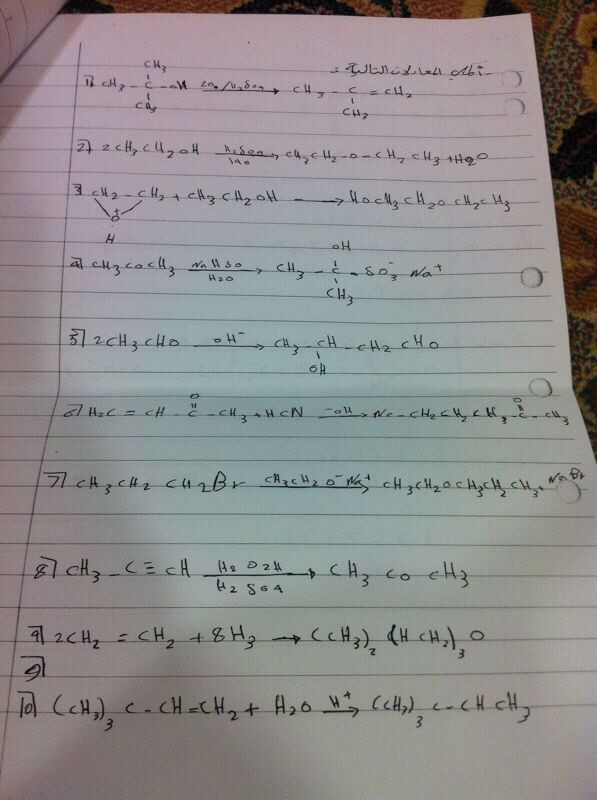 المعادلات التالية :
CH3
1) CH3 - C - OH → CH3 - C = CH2
CH3 CH2
2) 2CH3CH2OH H2SO4 / 140 → CH3CH2-O-CH2CH3 + H2O
3) CH2 - CH2 + CH3CH2OH → HOCH3CH2OCH2CH3
O+
H
OH
4) CH3COCH3 NaHSO / H2O → CH3 - C - SO3- Na+
CH3
5) 2CH3CHO OH- → CH3 - CH - CH2CHO
OH
O O
6) H2C = CH - C - CH3 + HCN -OH → NC - CH2CH2CH3 C - CH3
7) CH3CH2CH2Br CH3CH2O-Na+ → CH3CH2OCH3CH2CH3 + NaBr
8) CH3 - C ≡ CH H2SO4 → CH3COCH3
9) 2CH2 = CH2 + 8H3 → (CH3)2 (HCH2)3O
9)
10) (CH3)3 C - CH = CH2 + H2O H+ → (CH3)3 C - CHCH3